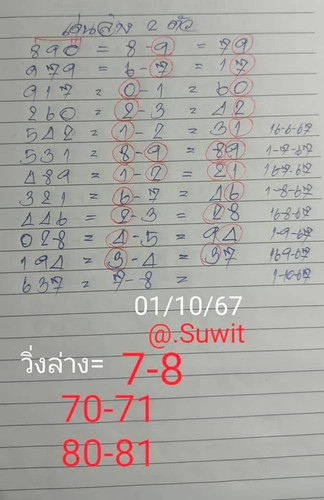 เด่นล่าง 2 ตัว
890 = 8-9 = 79
979 = 6-7 = 17
917 = 0-1 = 60
260 = 2-3 = 42
542 = 1-2 = 31 16-6-67
531 = 8-9 = 89 1-7-67
489 = 1-2 = 21 16-7-67
321 = 6-7 = 46 1-8-67
446 = 2-3 = 28 16-8-67
028 = 4-5 = 94 1-9-67
194 = 3-4 = 37 16-9-67
637 = 7-8 = 1-10-67
01/10/67
@.Suwit
วิ่งล่าง= 7-8
70-71
80-81